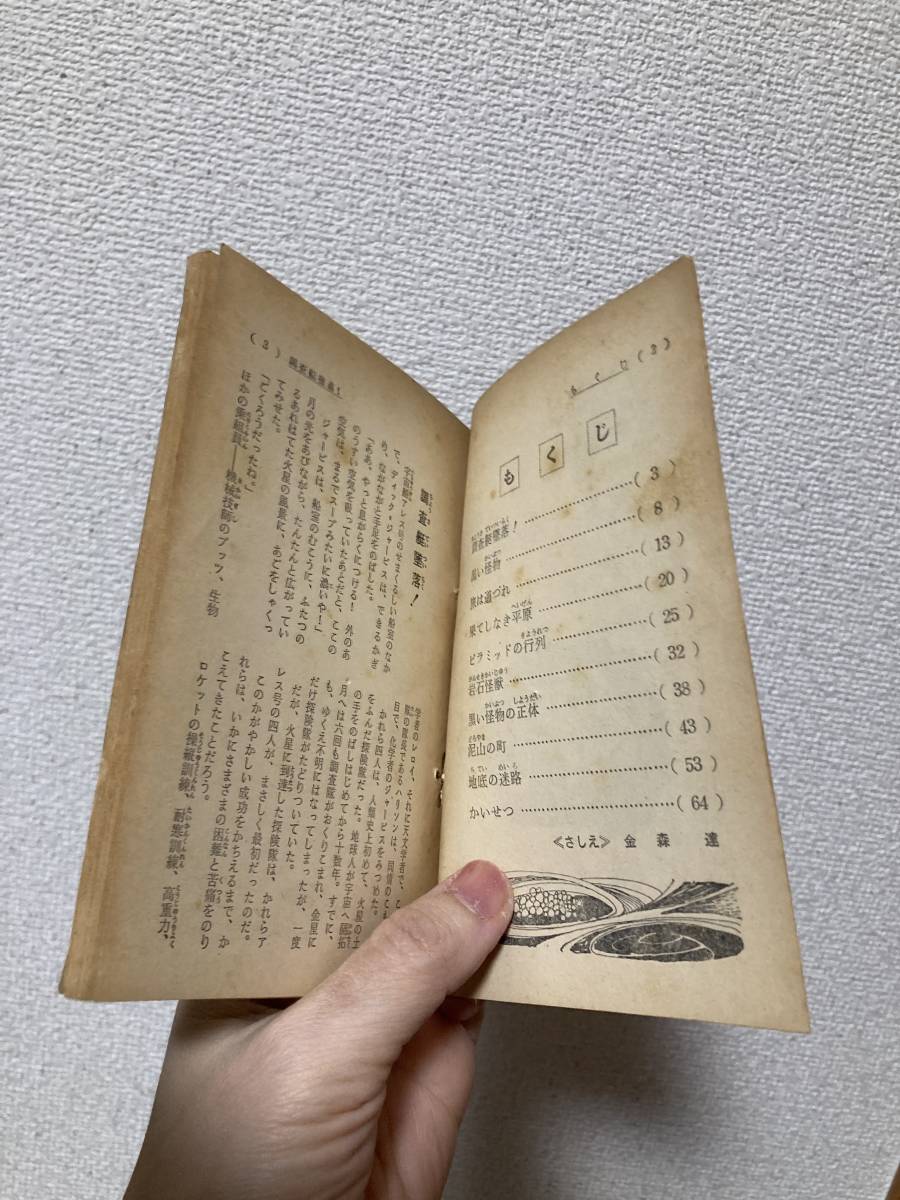 もくじ(2)
もくじ
調査艇墜落!……(3)
黒い怪物……(8)
旅は道づれ……(13)
果てしなき平原……(20)
ピラミッドの行列……(25)
岩石怪獣……(32)
黒い怪物の正体……(38)
泥山の町……(43)
地底の迷路……(53)
かいせつ……(64)
《さしえ》金森達
(3)調査艇墜落!
調査艇墜落!
宇宙艇アレス号のせまくるしい船室のなか
で、ディック=ジャービスは、できるかぎ
り、ながながと手足をのばした。
「ああ、やっと息がらくにつける!外のあ
のうすい空気を吸っていたあとだと、ここの
空気は、まるでスープみたいに濃いや!」
ジャービスは、船室のむこうに、ふたつの
月の光をあびながら、たんたんと広がってい
るあれはてた火星の風景に、あごをしゃくっ
てみせた。
「ごくろうだったね。」
ほかの乗組員――機械技師のプッツ、生物
学者のレロイ、それに天文学者で、こ
隊の隊長であるハリソンは、同情のこも
目で、化学者のジャービスをみつめた。
かれら四人は、人類史上初めて、火星の土
をふんだ探険隊だった。地球人が宇宙へ開拓
の手をのばしはじめてから十数年。すでに、
月へは六回も調査隊がおくりこまれ、金星に
も、ゆくえ不明にはなってしまったが、一度
だけ探険隊がたどりついていた。
だが、火星に到達した探険隊は、かれらア
レス号の四人が、まさしく最初だったのだ。
このかがやかしい成功をかちえるまで、か
れらは、いかにさまざまの困難と苦痛をのり
こえてきたことだろう。
ロケットの操縦訓練、耐寒訓練、高重力、